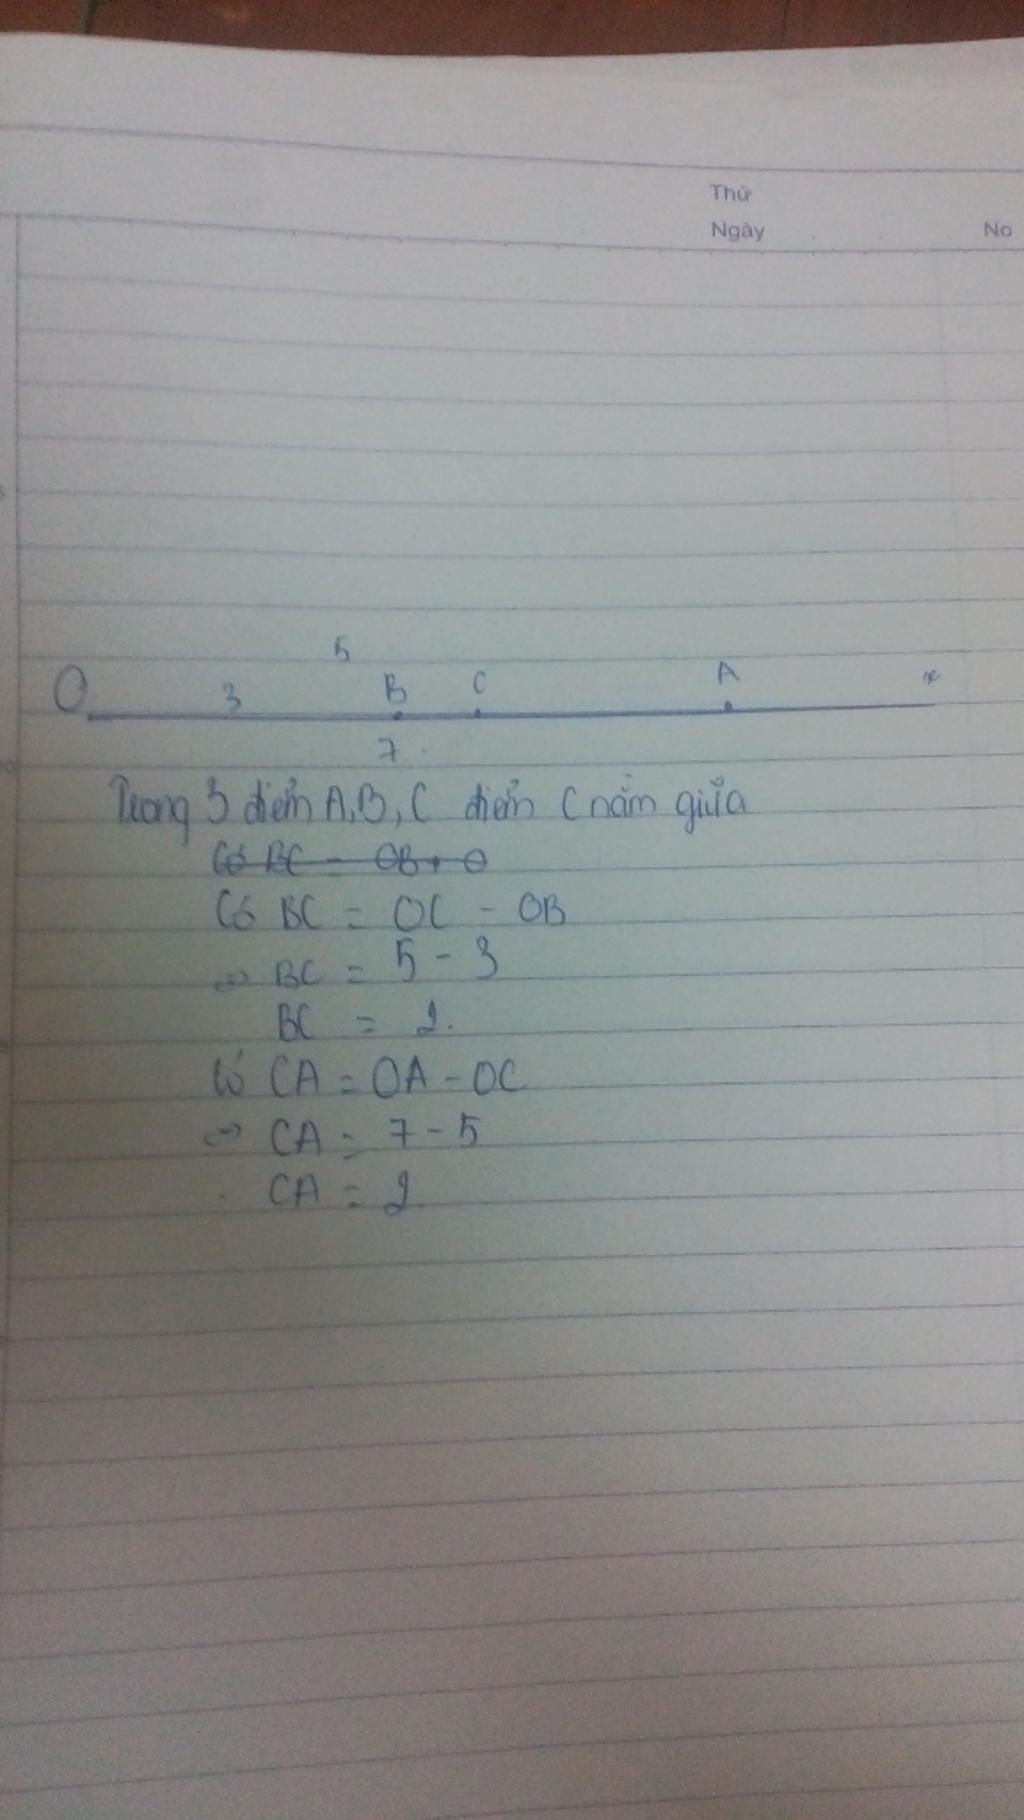 Thứ
Ngày No
5
O 3 B C A x
7
Trong 3 điểm A, B, C điểm C nằm giữa
Có BC = OB + O
Có BC = OC - OB
=> BC = 5 - 3
BC = 2.
Có CA = OA - OC
=> CA = 7 - 5
CA = 2.